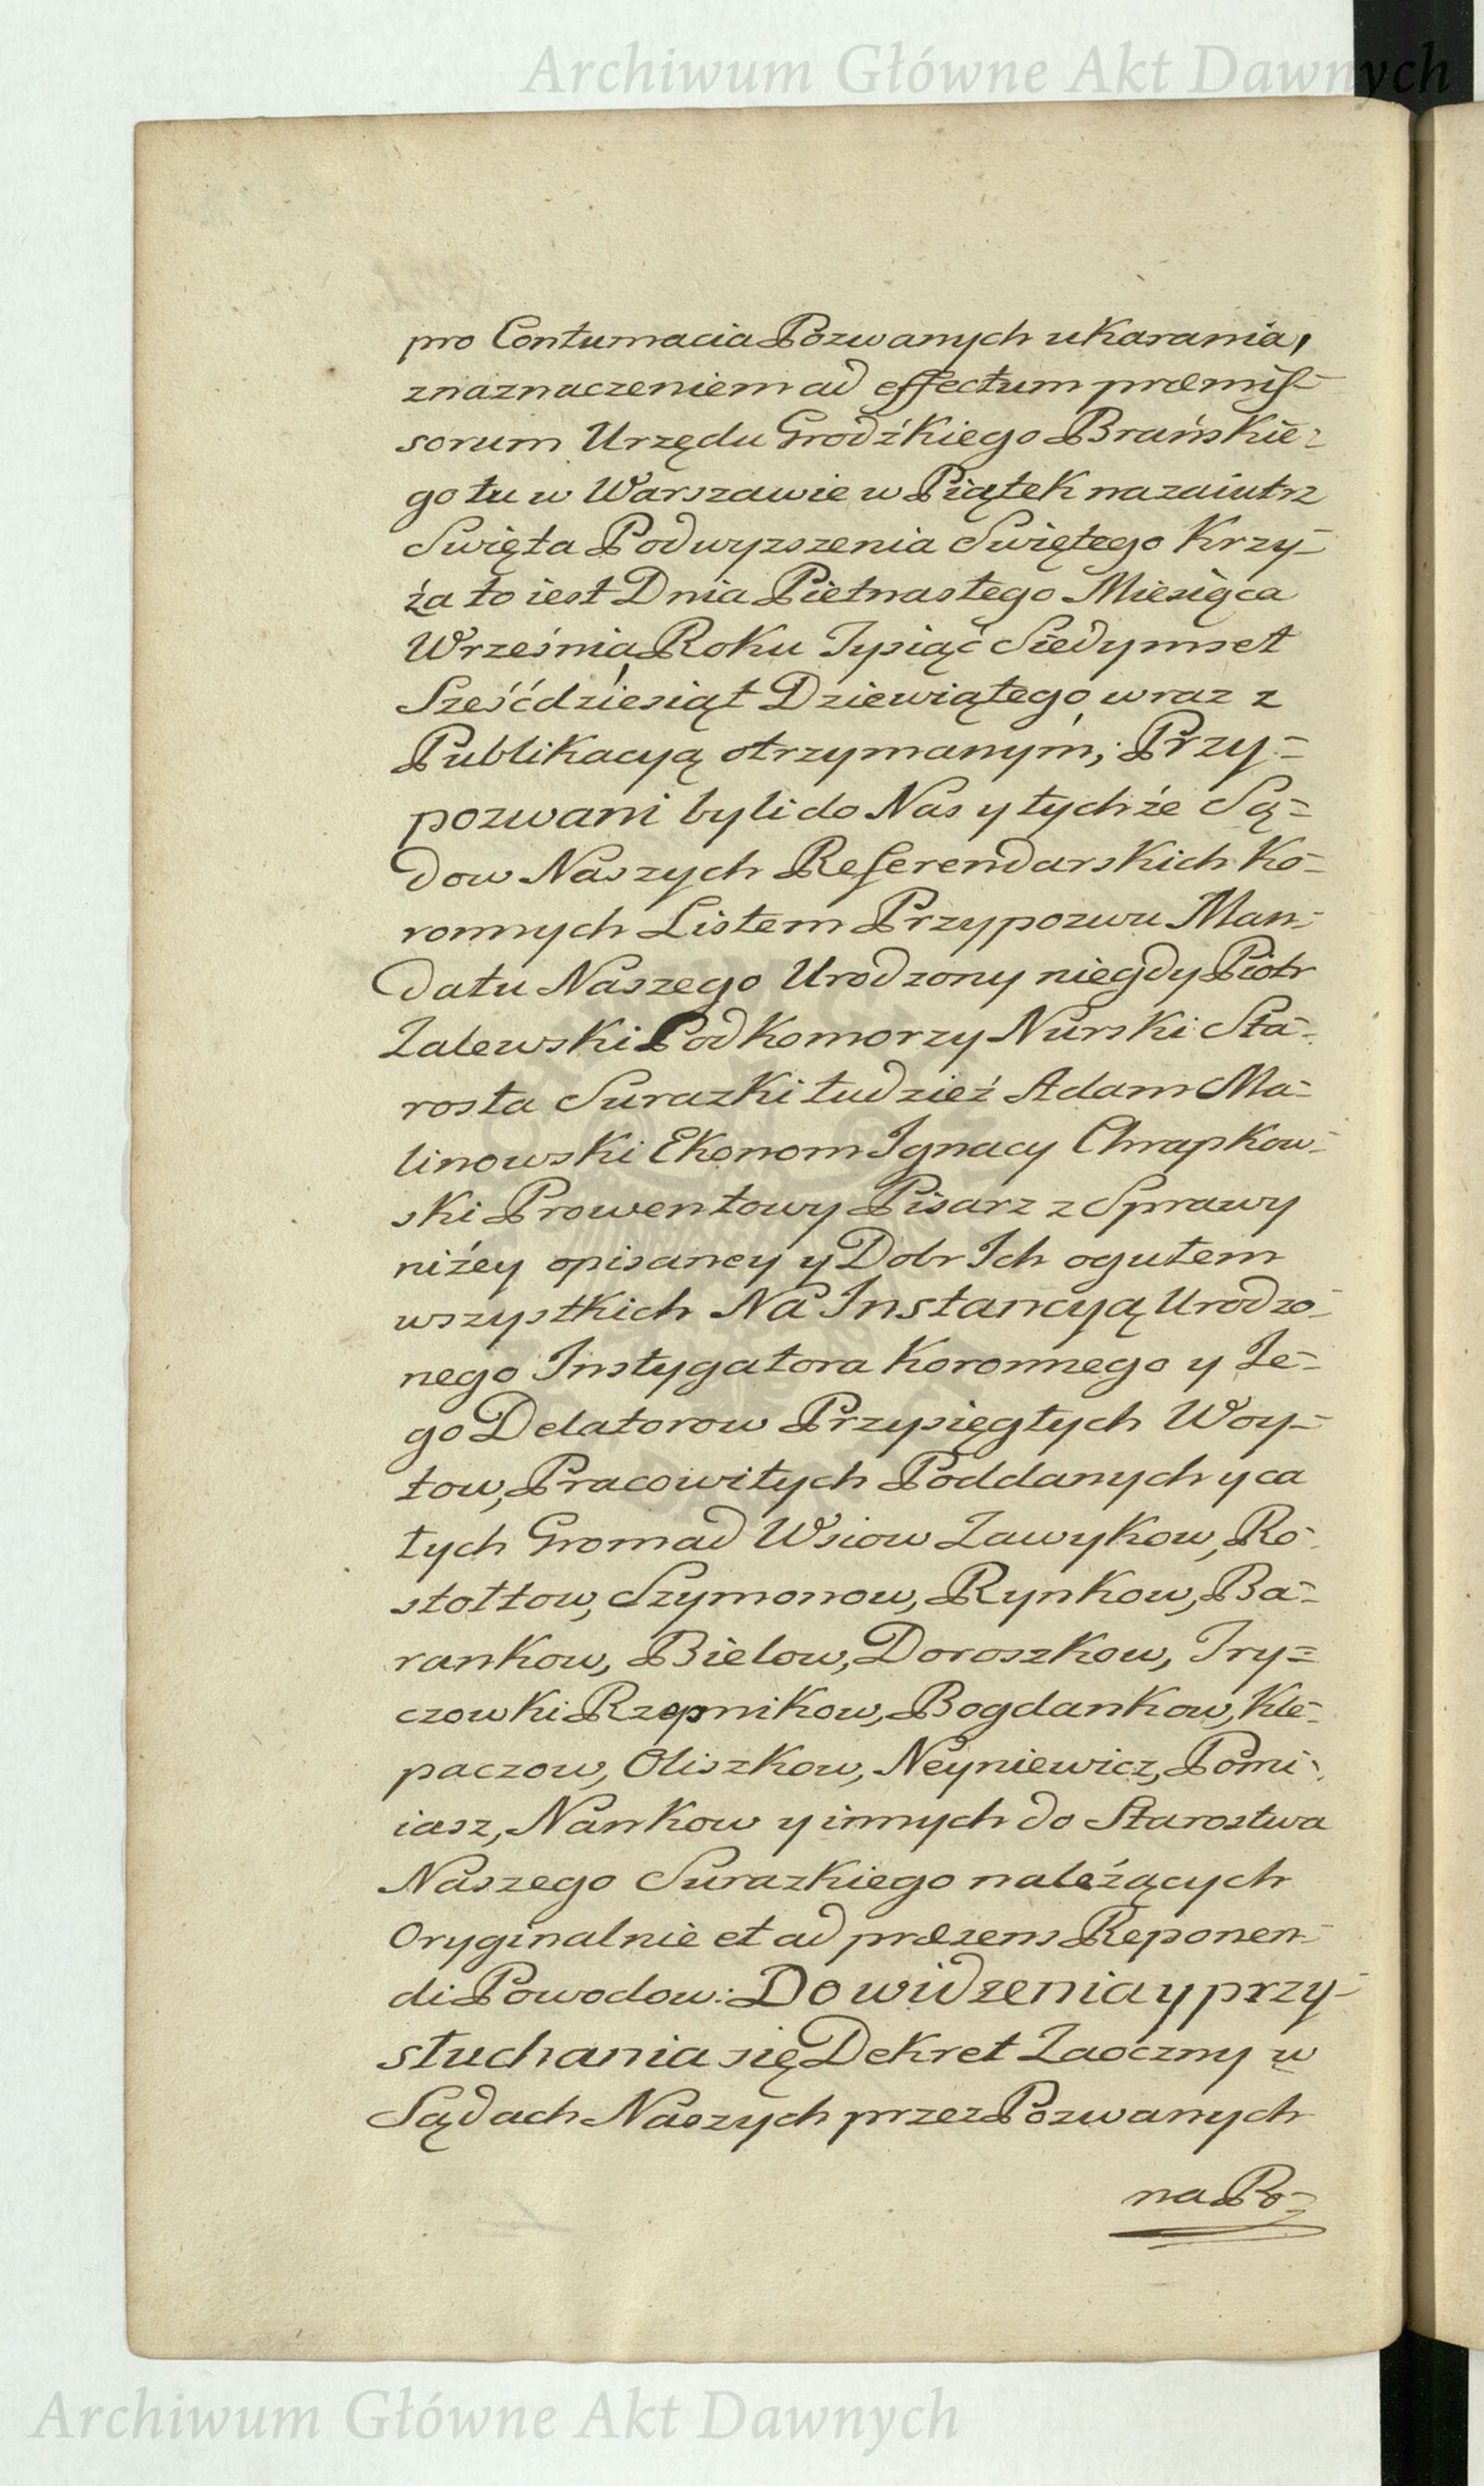 Archiwum Główne Akt Dawnych
pro Contumacia Pozwanych ukarania,
znaznaczeniem ad effectum præmis-
sorum Urzędu Grodźkiego Brańskie-
go tu w Warszawie w Piątek nazaiutrz
Swięta Podwyzszenia Swiętego Krzy-
ża to iest Dnia Pietnastego Miesiąca
Wrześnią Roku Tysiąć Siedymset
Sześćdziesiąt Dziewiątego wraz z
Publikacyą otrzymanym; Przy-
pozwani byli do Nas y tychże Są-
dow Naszych Referendarskich Ko-
ronnych Listem Przypozwu Man-
datu Naszego Urodzony niegdy Piotr
Zalewski Podkomorzy Nurski Sta-
rosta Surazki tudzież Adam Ma-
linowski Ekonom Ignacy Chrapkow-
ski Prowentowy Pisarz z Sprawy
niżey opisaney y Dobr Ich ogułem
wszystkich Na Instancyą Urodzo-
nego Instygatora Koronnego y Je-
go Delatorow Przysięgłych Woy-
tow, Pracowitych Poddanych y ca
łych Gromad Wsiow Zawykow, Ro-
stołtow, Szymonow, Rynkow, Ba-
rankow, Bielow, Doroszkow, Try-
czowki Rzepnikow, Bogdankow, Kle-
paczow, Oliszkow, Neyniewicz, Pomi-
iasz, Nankow y innych do Starostwa
Naszego Surazkiego należących
Oryginalnie et ad præsens Reponen-
di Powodow: Do widzenia y przy-
słuchania się Dekret Zaoczny w
Sądach Naszych przez Pozwanych
na Po-
Archiwum Główne Akt Dawnych